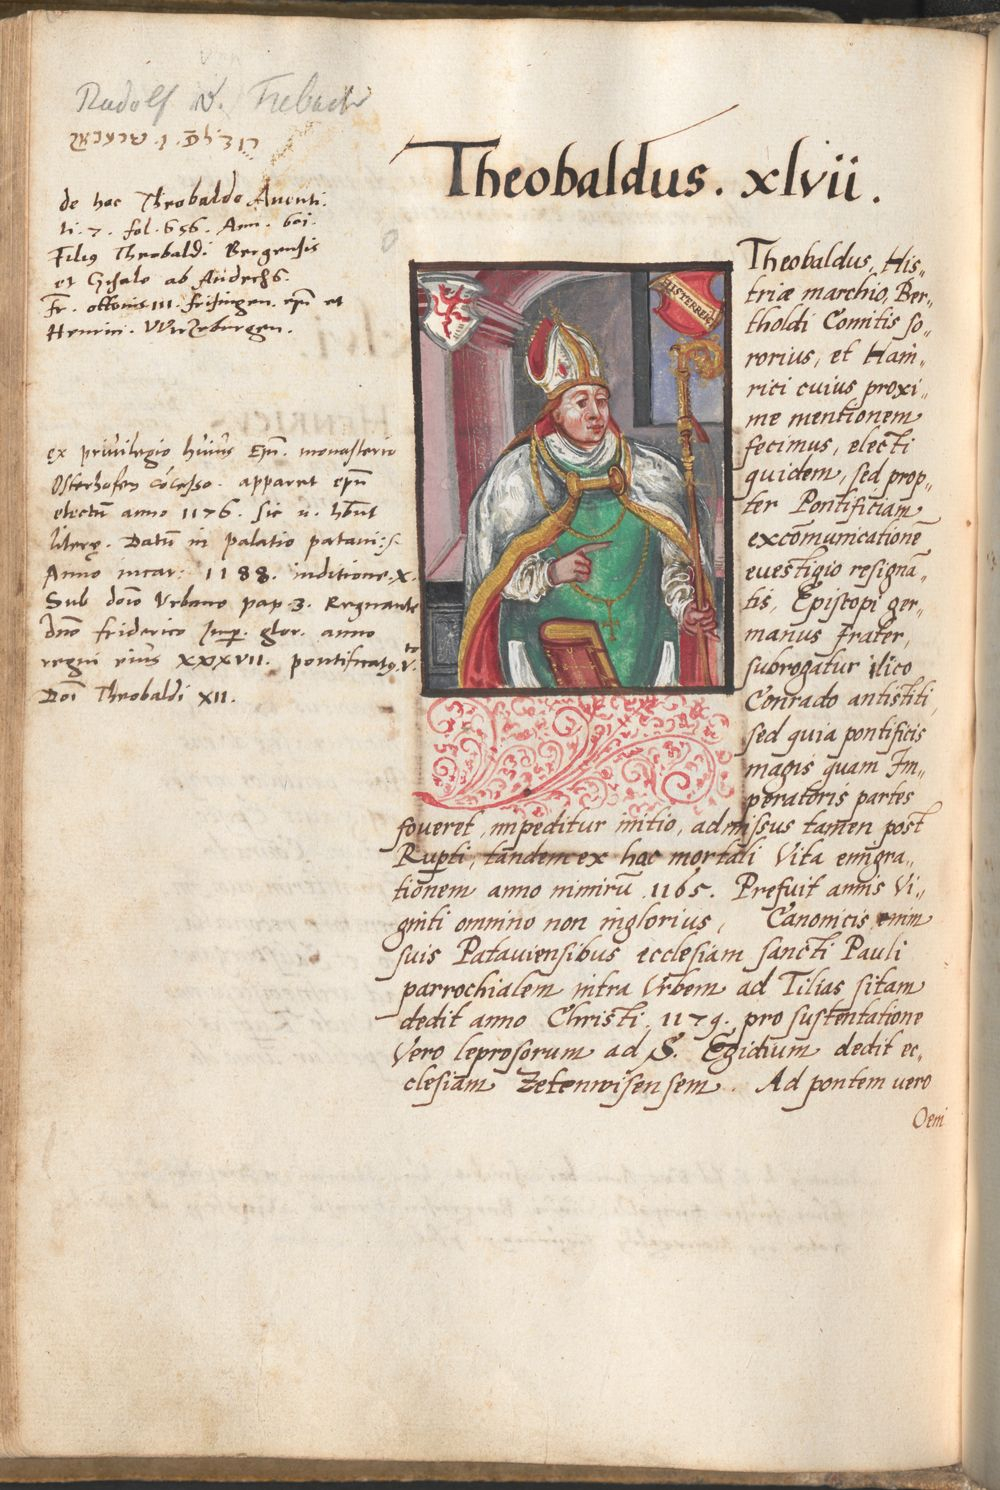 Rudolf v.
Theobaldus. xlvii.
de hoc Theobaldo Auenti.
li. 7. fol. 656. Ann. 601.
Filiꝯ Theobaldi Bergensis
et Gisale ab Andechs.
Fr. ottonis III. frisingen. epī et
Henrici. VVirzeburgen.
ex priuilegio huius Epī. monasterio
Osterhofen cōcesso. apparet epū
electū anno 1176. sic n. hn̄t
literę. Datū in palatio pataui:
Anno incar: 1188. inditione. X.
Sub dōio Vrbano pap. 3. Regnante
dn̄o friderico Imp. glor. anno
regni eius XXXVII. pontificatꝯ. to V.
Doi Theobaldi XII.
HISTERREI
Theobaldus, His„
triæ marchio, Ber„
tholdi Comitis so„
rorius, et Hain„
rici cuius proxi„
me mentionem
fecimus, electi
quidem, sed prop„
ter Pontificiam
excōmunicationē
euestigio resignā„
tis, Episcopi ger„
manus Frater,
subrogatur ilico
Conrado antistiti,
sed quia pontificis
magis quam Im„
peratoris partes
foueret, impeditur initio, admissus tamen post
Ruperti, tandem ex hac mortali Vita emigra„
tionem anno nimirū 1165. Prefuit annis Vi„
ginti omnino non inglorius, Canonicis enim
suis Patauiensibus ecclesiam sancti Pauli
parrochialem intra Vrbem ad Tilias sitam
dedit anno Christi 1179. pro sustentatione
Vero leprosorum ad S. Egidium dedit ec„
clesiam Zetenwisensem. Ad pontem uero
Oeni